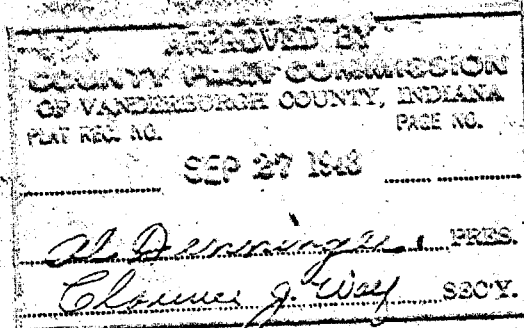 APPROVED BY
COUNTY PLAN COMMISSION
OF VANDERBURGH COUNTY, INDIANA
PLAT REC. NO. PAGE NO.
SEP 27 1948
Al PRES.
Clarence J. SEC'Y.